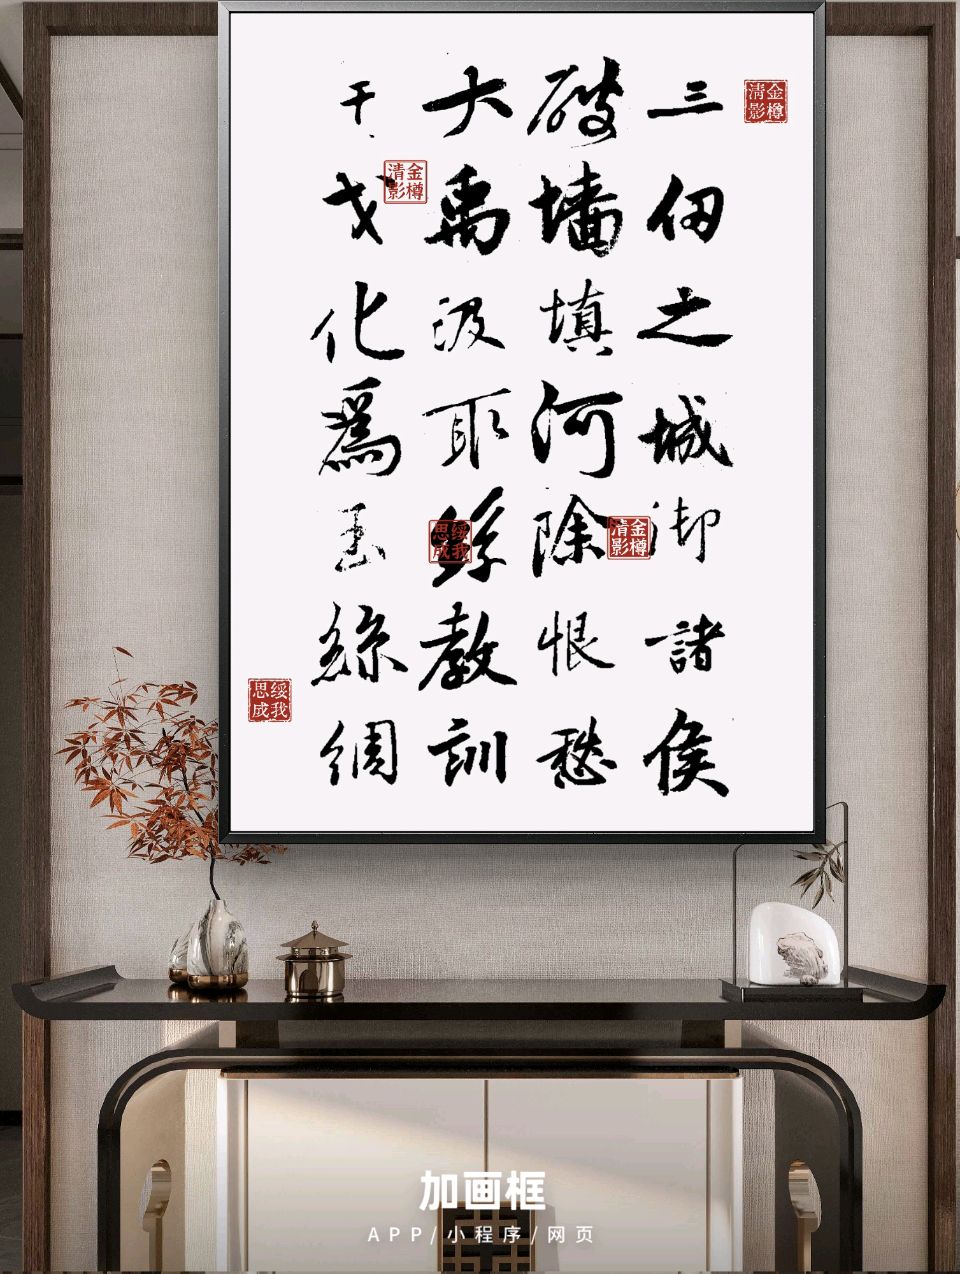 三仞之城御諸侯
破墙填河除恨愁
大禹汲取终教訓
干戈化爲玉絲绸
金樽清影
金樽清影
金樽清影
绥我思成
绥我思成
加画框
APP/小程序/网页